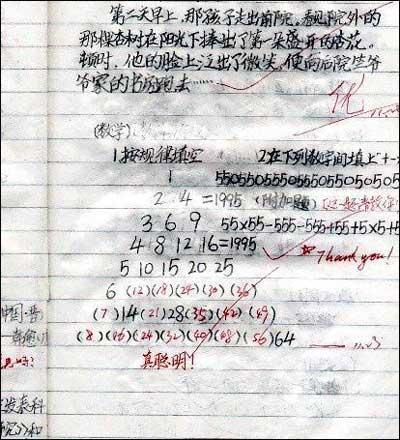 第二天早上,那孩子走出前院。看见院外的
那棵杏树在阳光下捧出了第一朵盛开的杏花。
顿时,他的脸上泛出了微笑,便向后院竺爷
爷家的书房跑去……
优
(数学)
1.按规律填空 2.在下列数字间填上
1
2 4 =1995 (附加题)
3 6 9 55×55-555-555+55+5×5+5
4 8 12 16=1995 Thank you!
5 10 15 20 25
6 (12)(18)(24)(30)(36)
(7)14(21)28(35)(42)(49)
(8)(16)(24)(32)(40)(48)(56)64
真聪明!
中国·
发表科
和